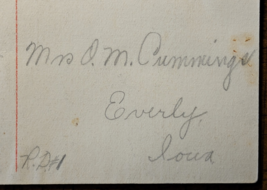 Mrs O. M. Cummings
Everly,
Iowa
R.D#1